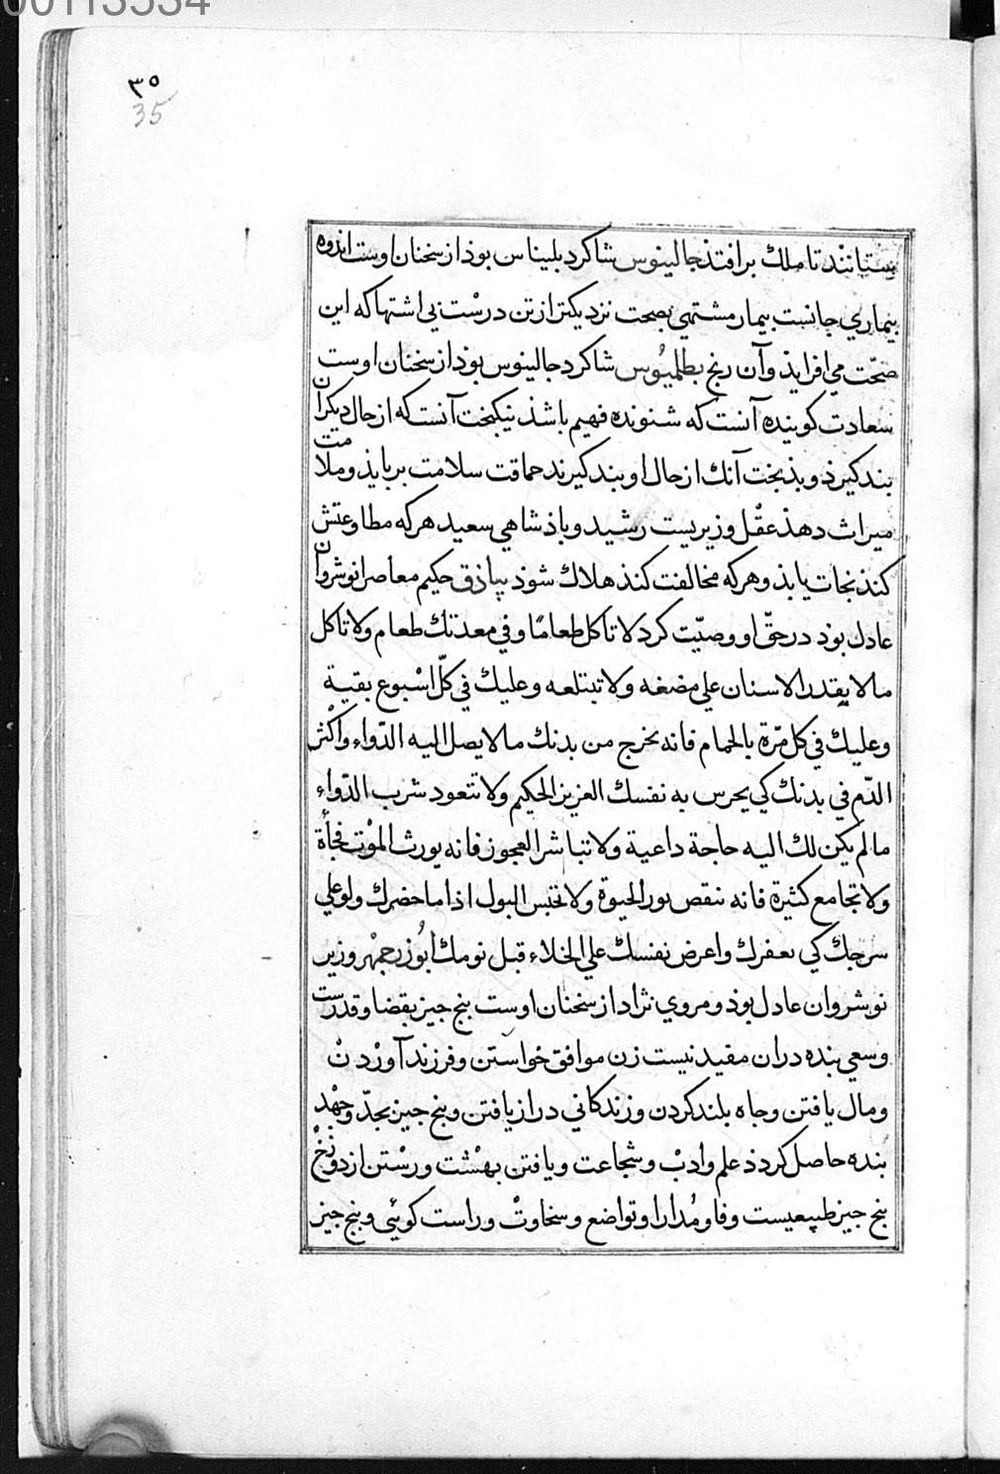 00113534
٣٥
35
بستانند تا ملك برافتذ جالينوس شاكرد بليناس بوذ از سخنان اوست اندوه
بيماري جانست بيمار مشتهي بصحت نزديكتر از تن درست بي اشتها كه اين
صحّت مي افزايذ و آن رنج بطلميوس شاكرد جالينوس بوذ از سخنان اوست
سعادت كوينده آنست كه شنونده فهيم باشذ نيكبخت آنست كه از حال ديكران
بند كيرذ و بذبخت آنك از حال او بند كيرند حماقت سلامت بربايذ و ملامت
ميراث دهذ عقل وزيريست رشيد و باذشاهي سعيد هر كه مطاوعتش
كند نجات يابذ و هر كه مخالفت كند هلاك شوذ بياذق حكيم معاصر انوشروان
عادل بوذ در حقّ او وصيّت كرد لا تاكل طعامًا و في معدتك طعام ولا تاكل
مالا يقدر الاسنان علي مضغه ولا تبتلعه وعليك في كلّ اسبوع بقية
وعليك في كل مرّة بالحمام فانه يخرج من بدنك مالا يصل اليه الدّواء واكثر
الدّم في بدنك كي يحرس به نفسك العزيز الحكيم ولا تتعود شرب الدّواء
مالم يكن لك اليه حاجة داعية ولا تباشر العجوز فانه يورث الموت فجأة
ولا تجامع كثيرة فانه تنقص نور الحيوة ولا تحبس البول اذا ما حضرك ولو علي
سرجك كي يعفرك واعرض نفسك علي الخلاء قبل نومك ابوزرجمهر وزير
نوشروان عادل بوذ و مروي نژاد از سخنان اوست بنج جيز بقضا و قدرست
و سعي بنده دران مفيد نيست زن موافق خواستن و فرزند آوردن
و مال يافتن و جاه بلند كردن و زندكاني دراز يافتن و بنج جيز بجدّ و جهد
بنده حاصل كردذ علم و ادب و شجاعت و يافتن بهشت و رستن از دوزخ
بنج جيز طبيعيست وفا و مدارا و تواضع و سخاوت و راست كوئي و بنج جيز